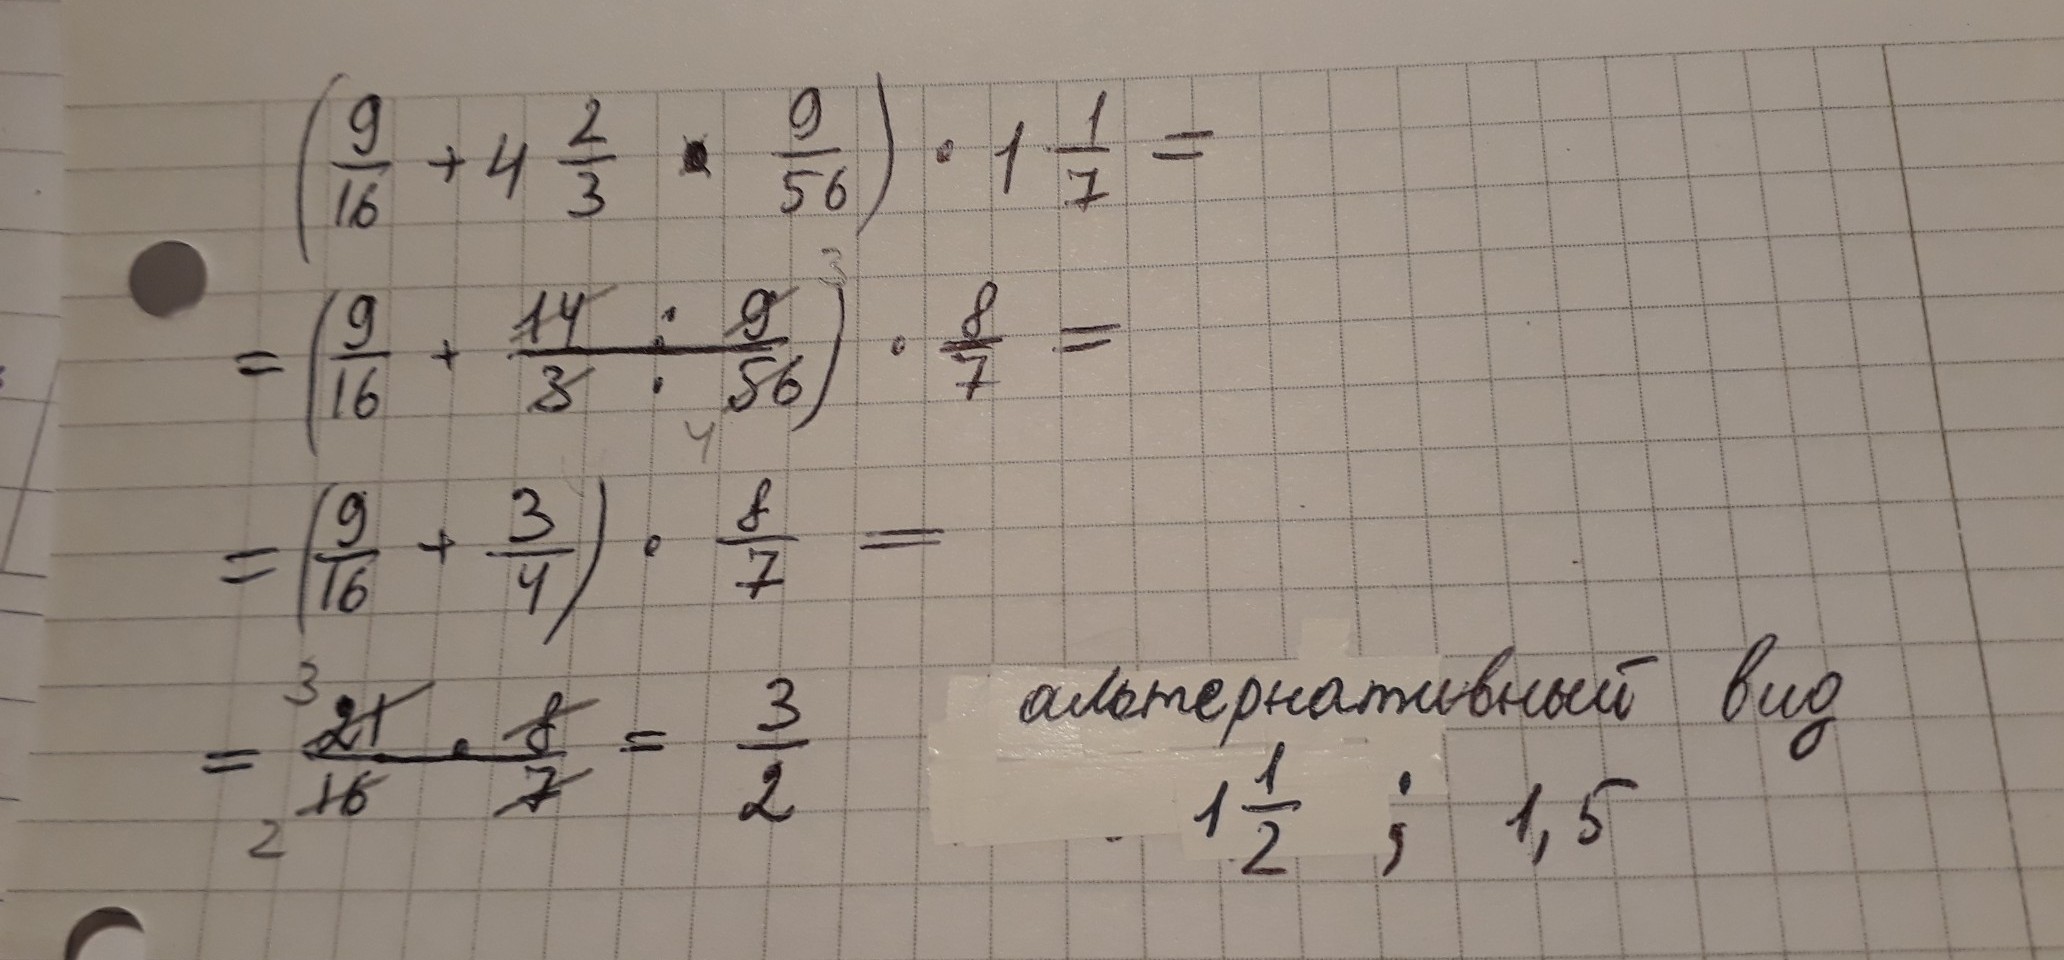 (9/16 + 4 2/3 · 9/56) · 1 1/7 =
= (9/16 + 14/3 : 9/56) · 8/7 =
3
4
= (9/16 + 3/4) · 8/7 =
= 21/16 · 8/7 = 3/2
3
2
альтернативный вид
1 1/2 ; 1,5